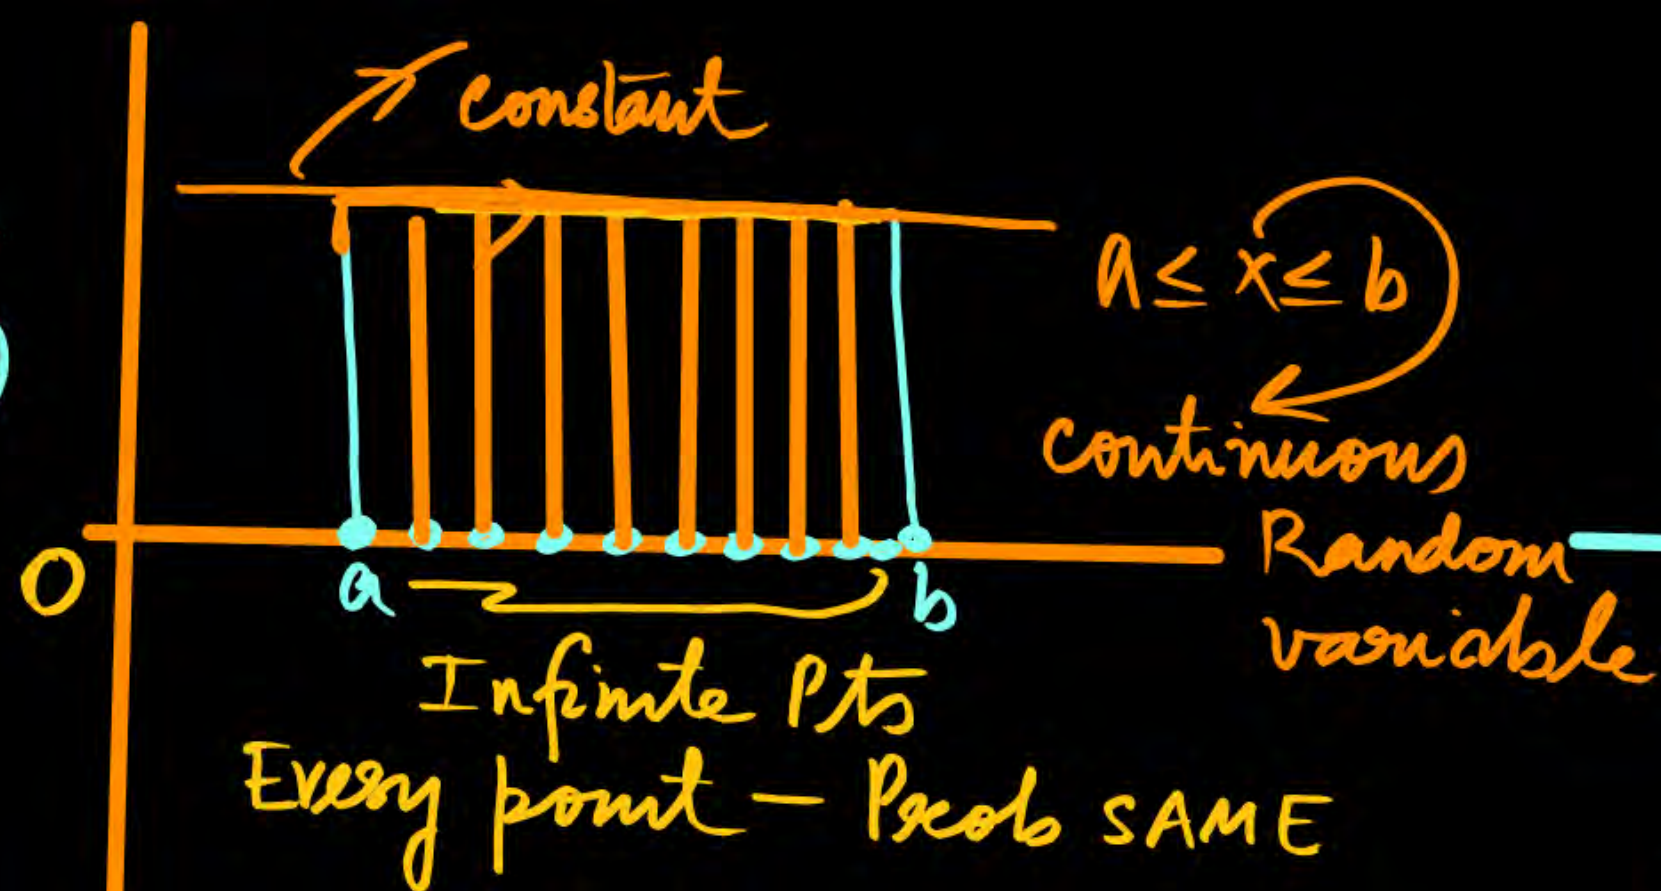 constant
a ≤ x ≤ b
continuous
Random
variable
O
a
b
Infinite Pts
Every point — Prob SAME